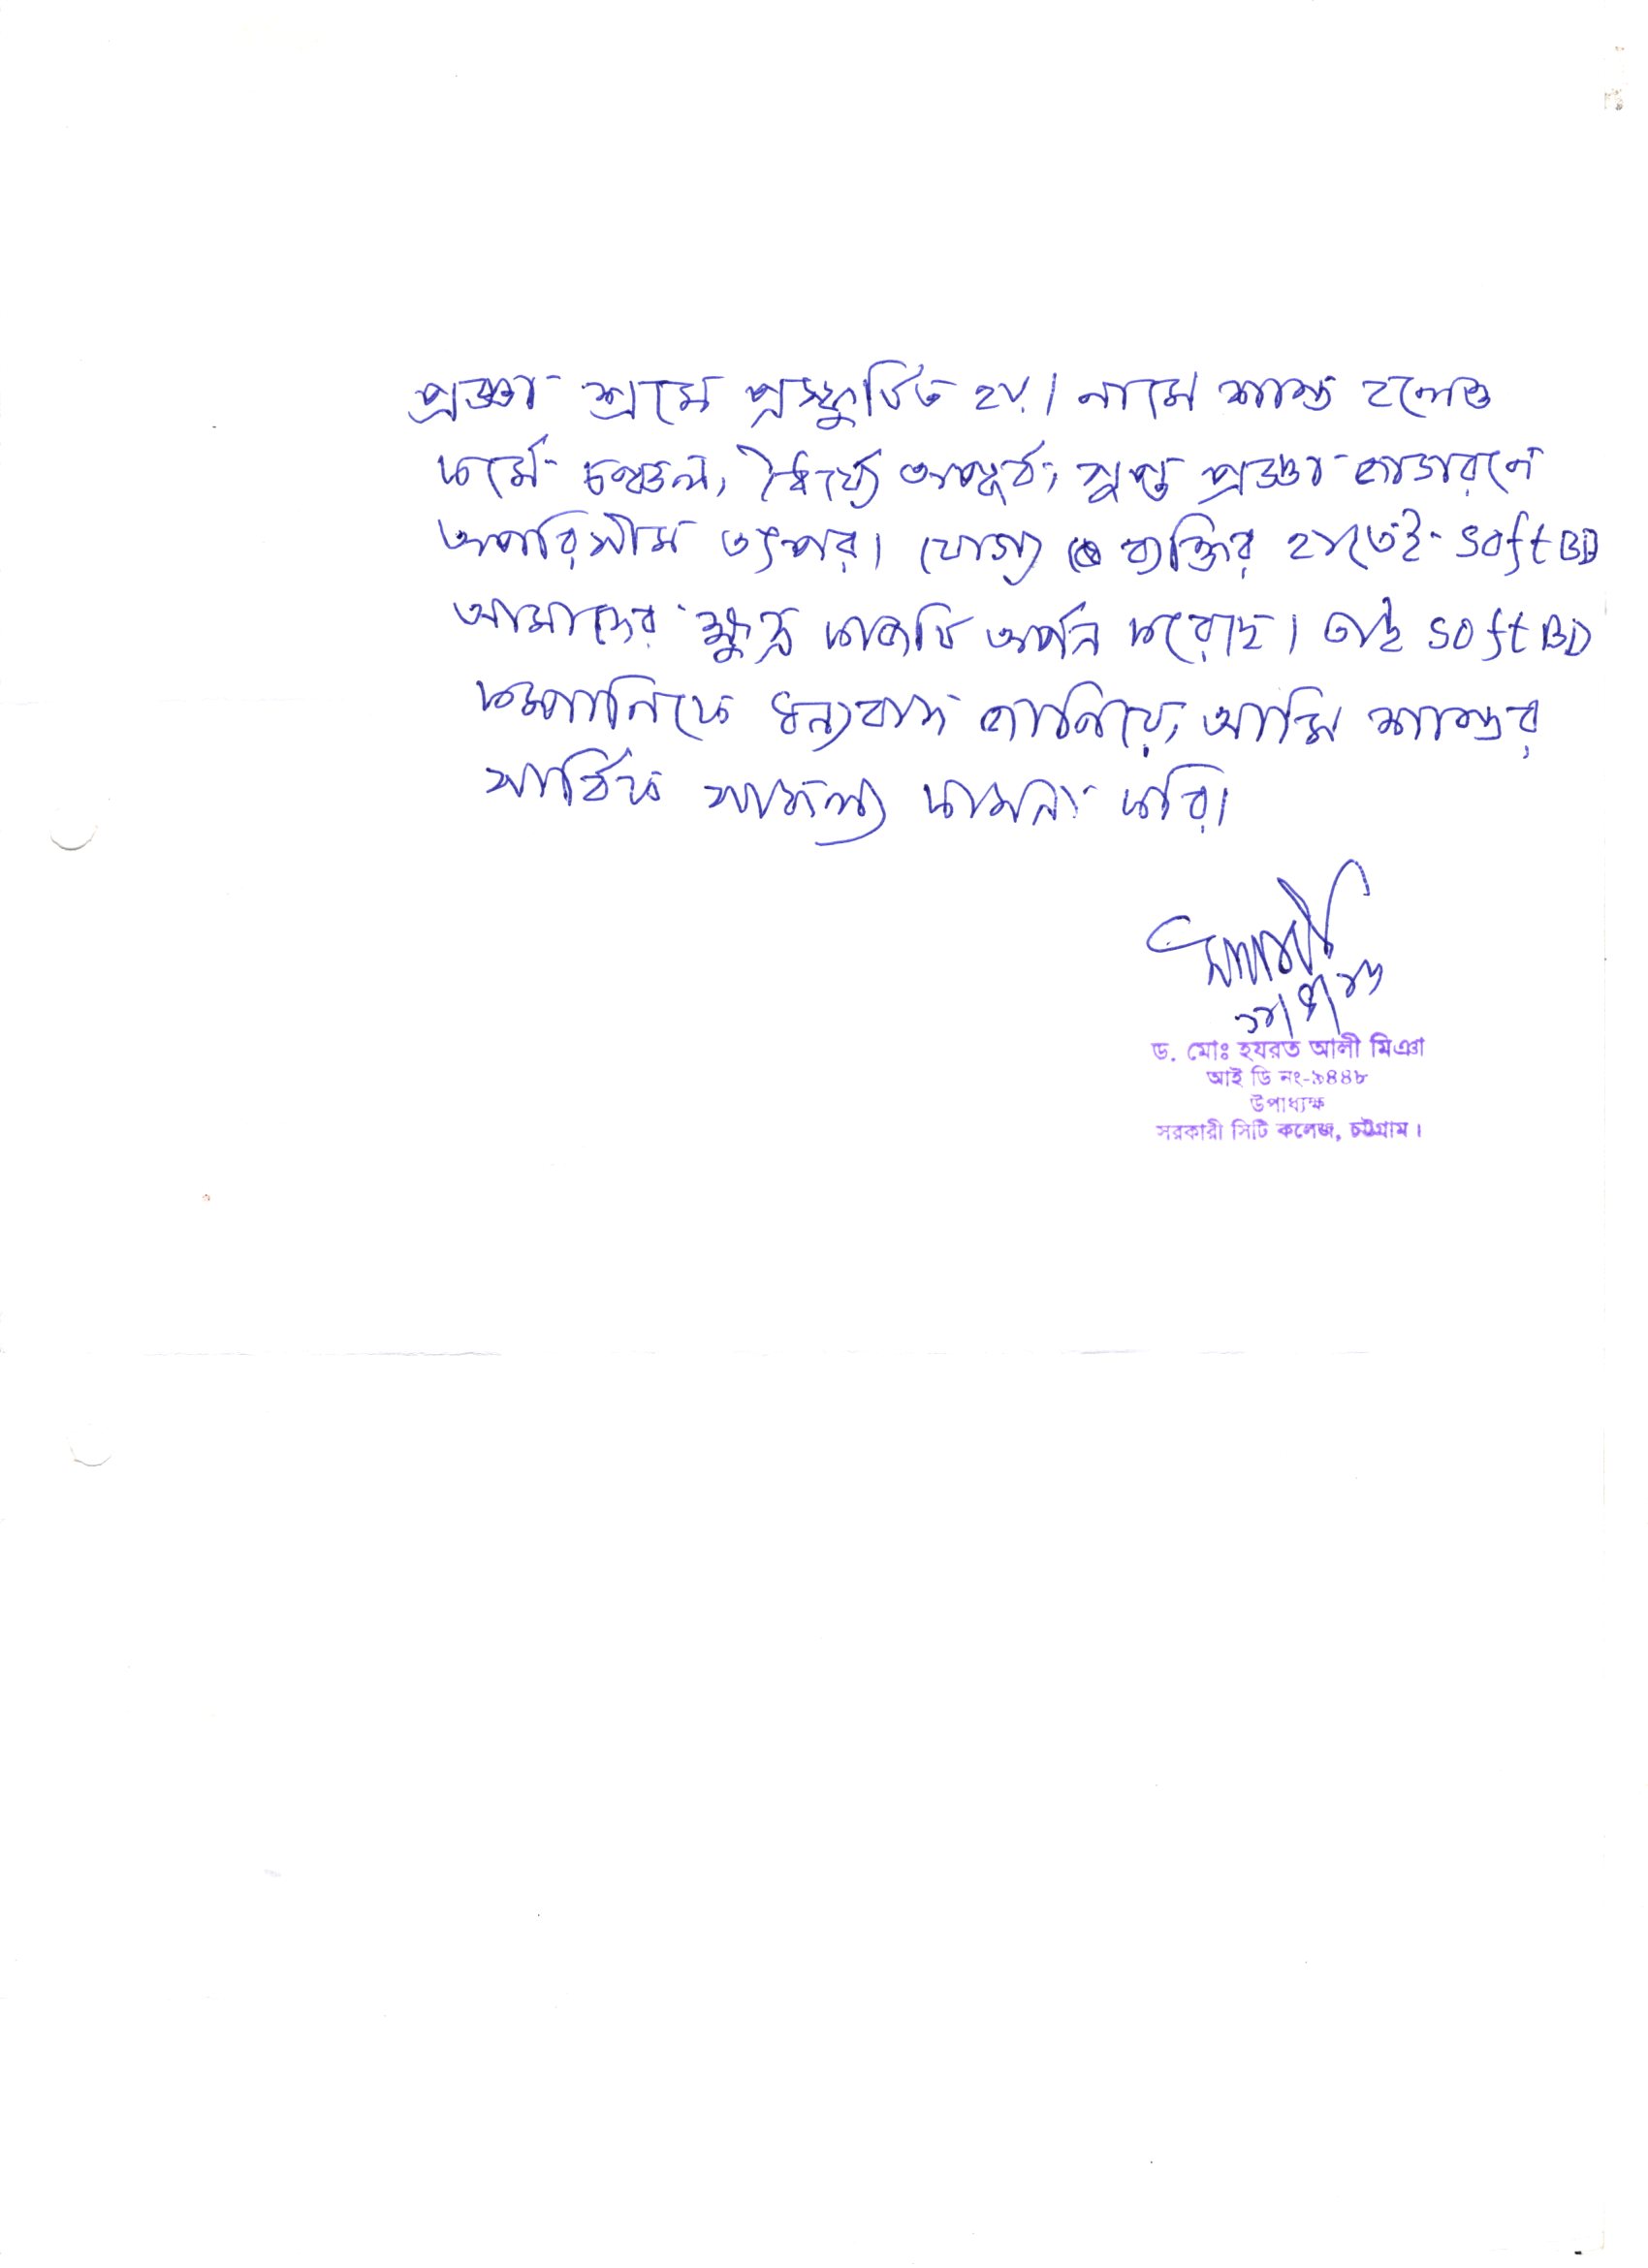 প্রজ্ঞা শ্রমে প্রস্ফুটিত হয়। নামে শান্ত হলেও
কর্মে চঞ্চল, ধৈর্য্যে আকন্ঠ, সুপ্ত প্রজ্ঞা জাগরণে
অপরিসীম তৎপর। যোগ্য ব্যক্তির হাতেই Soft BD
আমাদের ক্ষুদ্র কাজটি অর্পন করেছে। তাই Soft BD
কোম্পানিকে ধন্যবাদ জানিয়ে, আমি শান্তর
সার্বিক সাফল্য কামনা করি।
ড. মোঃ হযরত আলী মিঞা
আই ডি নং-৯৪৪৮
উপাধ্যক্ষ
সরকারী সিটি কলেজ, চট্টগ্রাম।